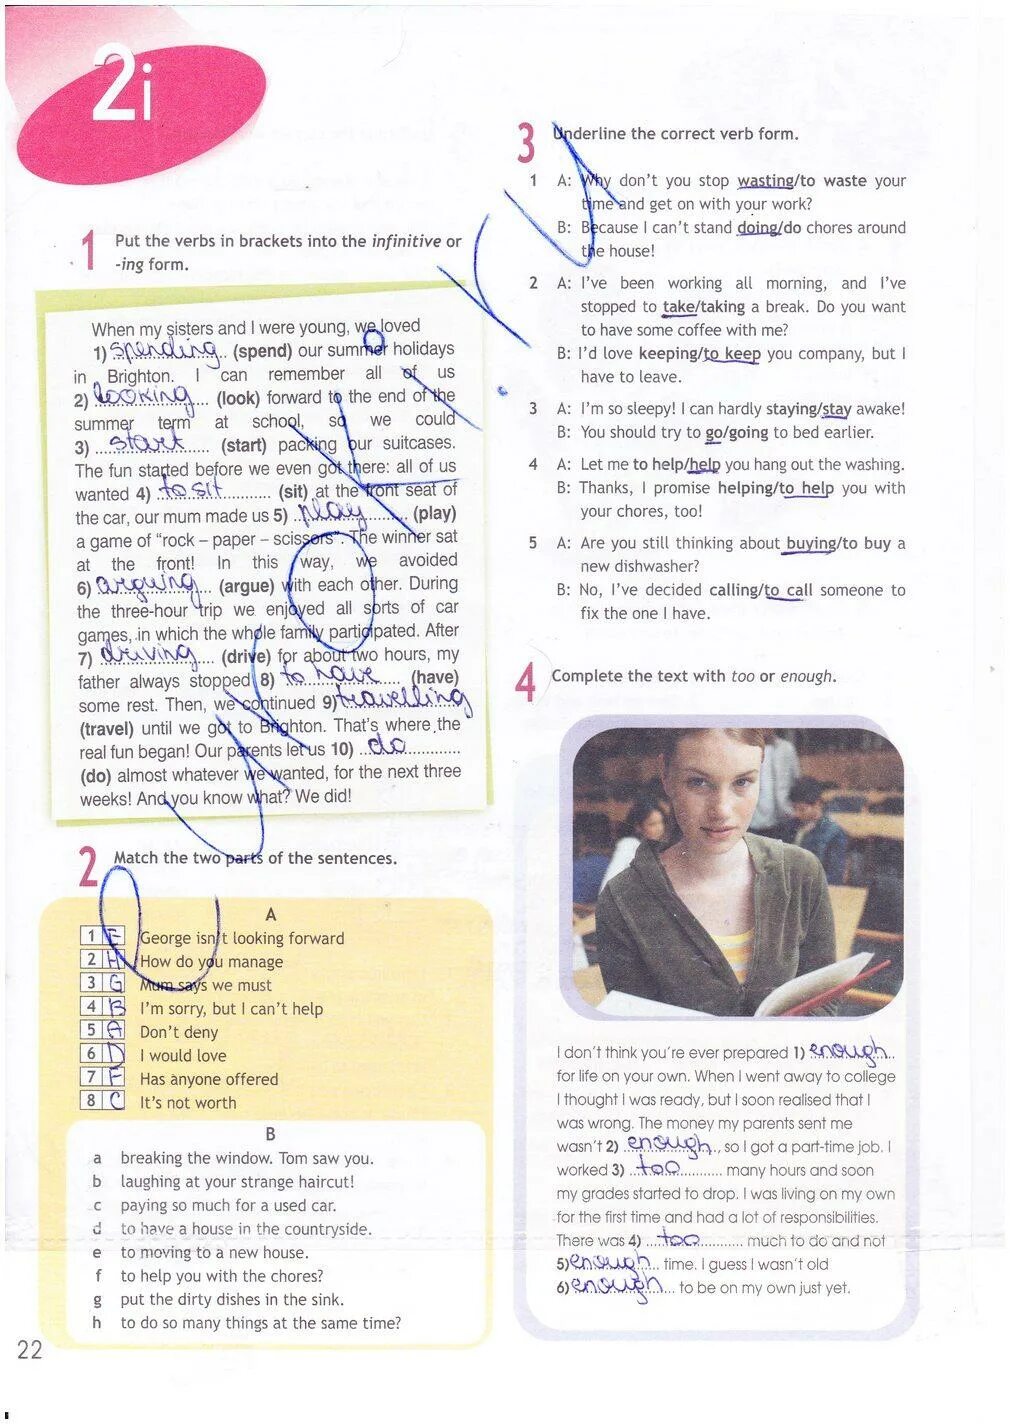 2i
1 Put the verbs in brackets into the infinitive or
-ing form.
When my sisters and I were young, we loved
1) spending (spend) our summer holidays
in Brighton. I can remember all of us
2) looking (look) forward to the end of the
summer term at school, so we could
3) start (start) packing our suitcases.
The fun started before we even got there: all of us
wanted 4) to sit (sit) at the front seat of
the car, our mum made us 5) play (play)
a game of “rock – paper – scissors”. The winner sat
at the front! In this way, we avoided
6) arguing (argue) with each other. During
the three-hour trip we enjoyed all sorts of car
games, in which the whole family participated. After
7) driving (drive) for about two hours, my
father always stopped 8) to have (have)
some rest. Then, we continued 9) travelling
(travel) until we got to Brighton. That's where the
real fun began! Our parents let us 10) do
(do) almost whatever we wanted, for the next three
weeks! And you know what? We did!
2 Match the two parts of the sentences.
A
1 E George isn't looking forward
2 H How do you manage
3 G Mum says we must
4 B I'm sorry, but I can't help
5 A Don't deny
6 D I would love
7 F Has anyone offered
8 C It's not worth
B
a breaking the window. Tom saw you.
b laughing at your strange haircut!
c paying so much for a used car.
d to have a house in the countryside.
e to moving to a new house.
f to help you with the chores?
g put the dirty dishes in the sink.
h to do so many things at the same time?
22
3 Underline the correct verb form.
1 A: Why don't you stop wasting/to waste your
time and get on with your work?
B: Because I can't stand doing/do chores around
the house!
2 A: I've been working all morning, and I've
stopped to take/taking a break. Do you want
to have some coffee with me?
B: I'd love keeping/to keep you company, but I
have to leave.
3 A: I'm so sleepy! I can hardly staying/stay awake!
B: You should try to go/going to bed earlier.
4 A: Let me to help/help you hang out the washing.
B: Thanks, I promise helping/to help you with
your chores, too!
5 A: Are you still thinking about buying/to buy a
new dishwasher?
B: No, I've decided calling/to call someone to
fix the one I have.
4 Complete the text with too or enough.
I don't think you're ever prepared 1) enough
for life on your own. When I went away to college
I thought I was ready, but I soon realised that I
was wrong. The money my parents sent me
wasn't 2) enough, so I got a part-time job. I
worked 3) too many hours and soon
my grades started to drop. I was living on my own
for the first time and had a lot of responsibilities.
There was 4) too much to do and not
5) enough time. I guess I wasn't old
6) enough to be on my own just yet.